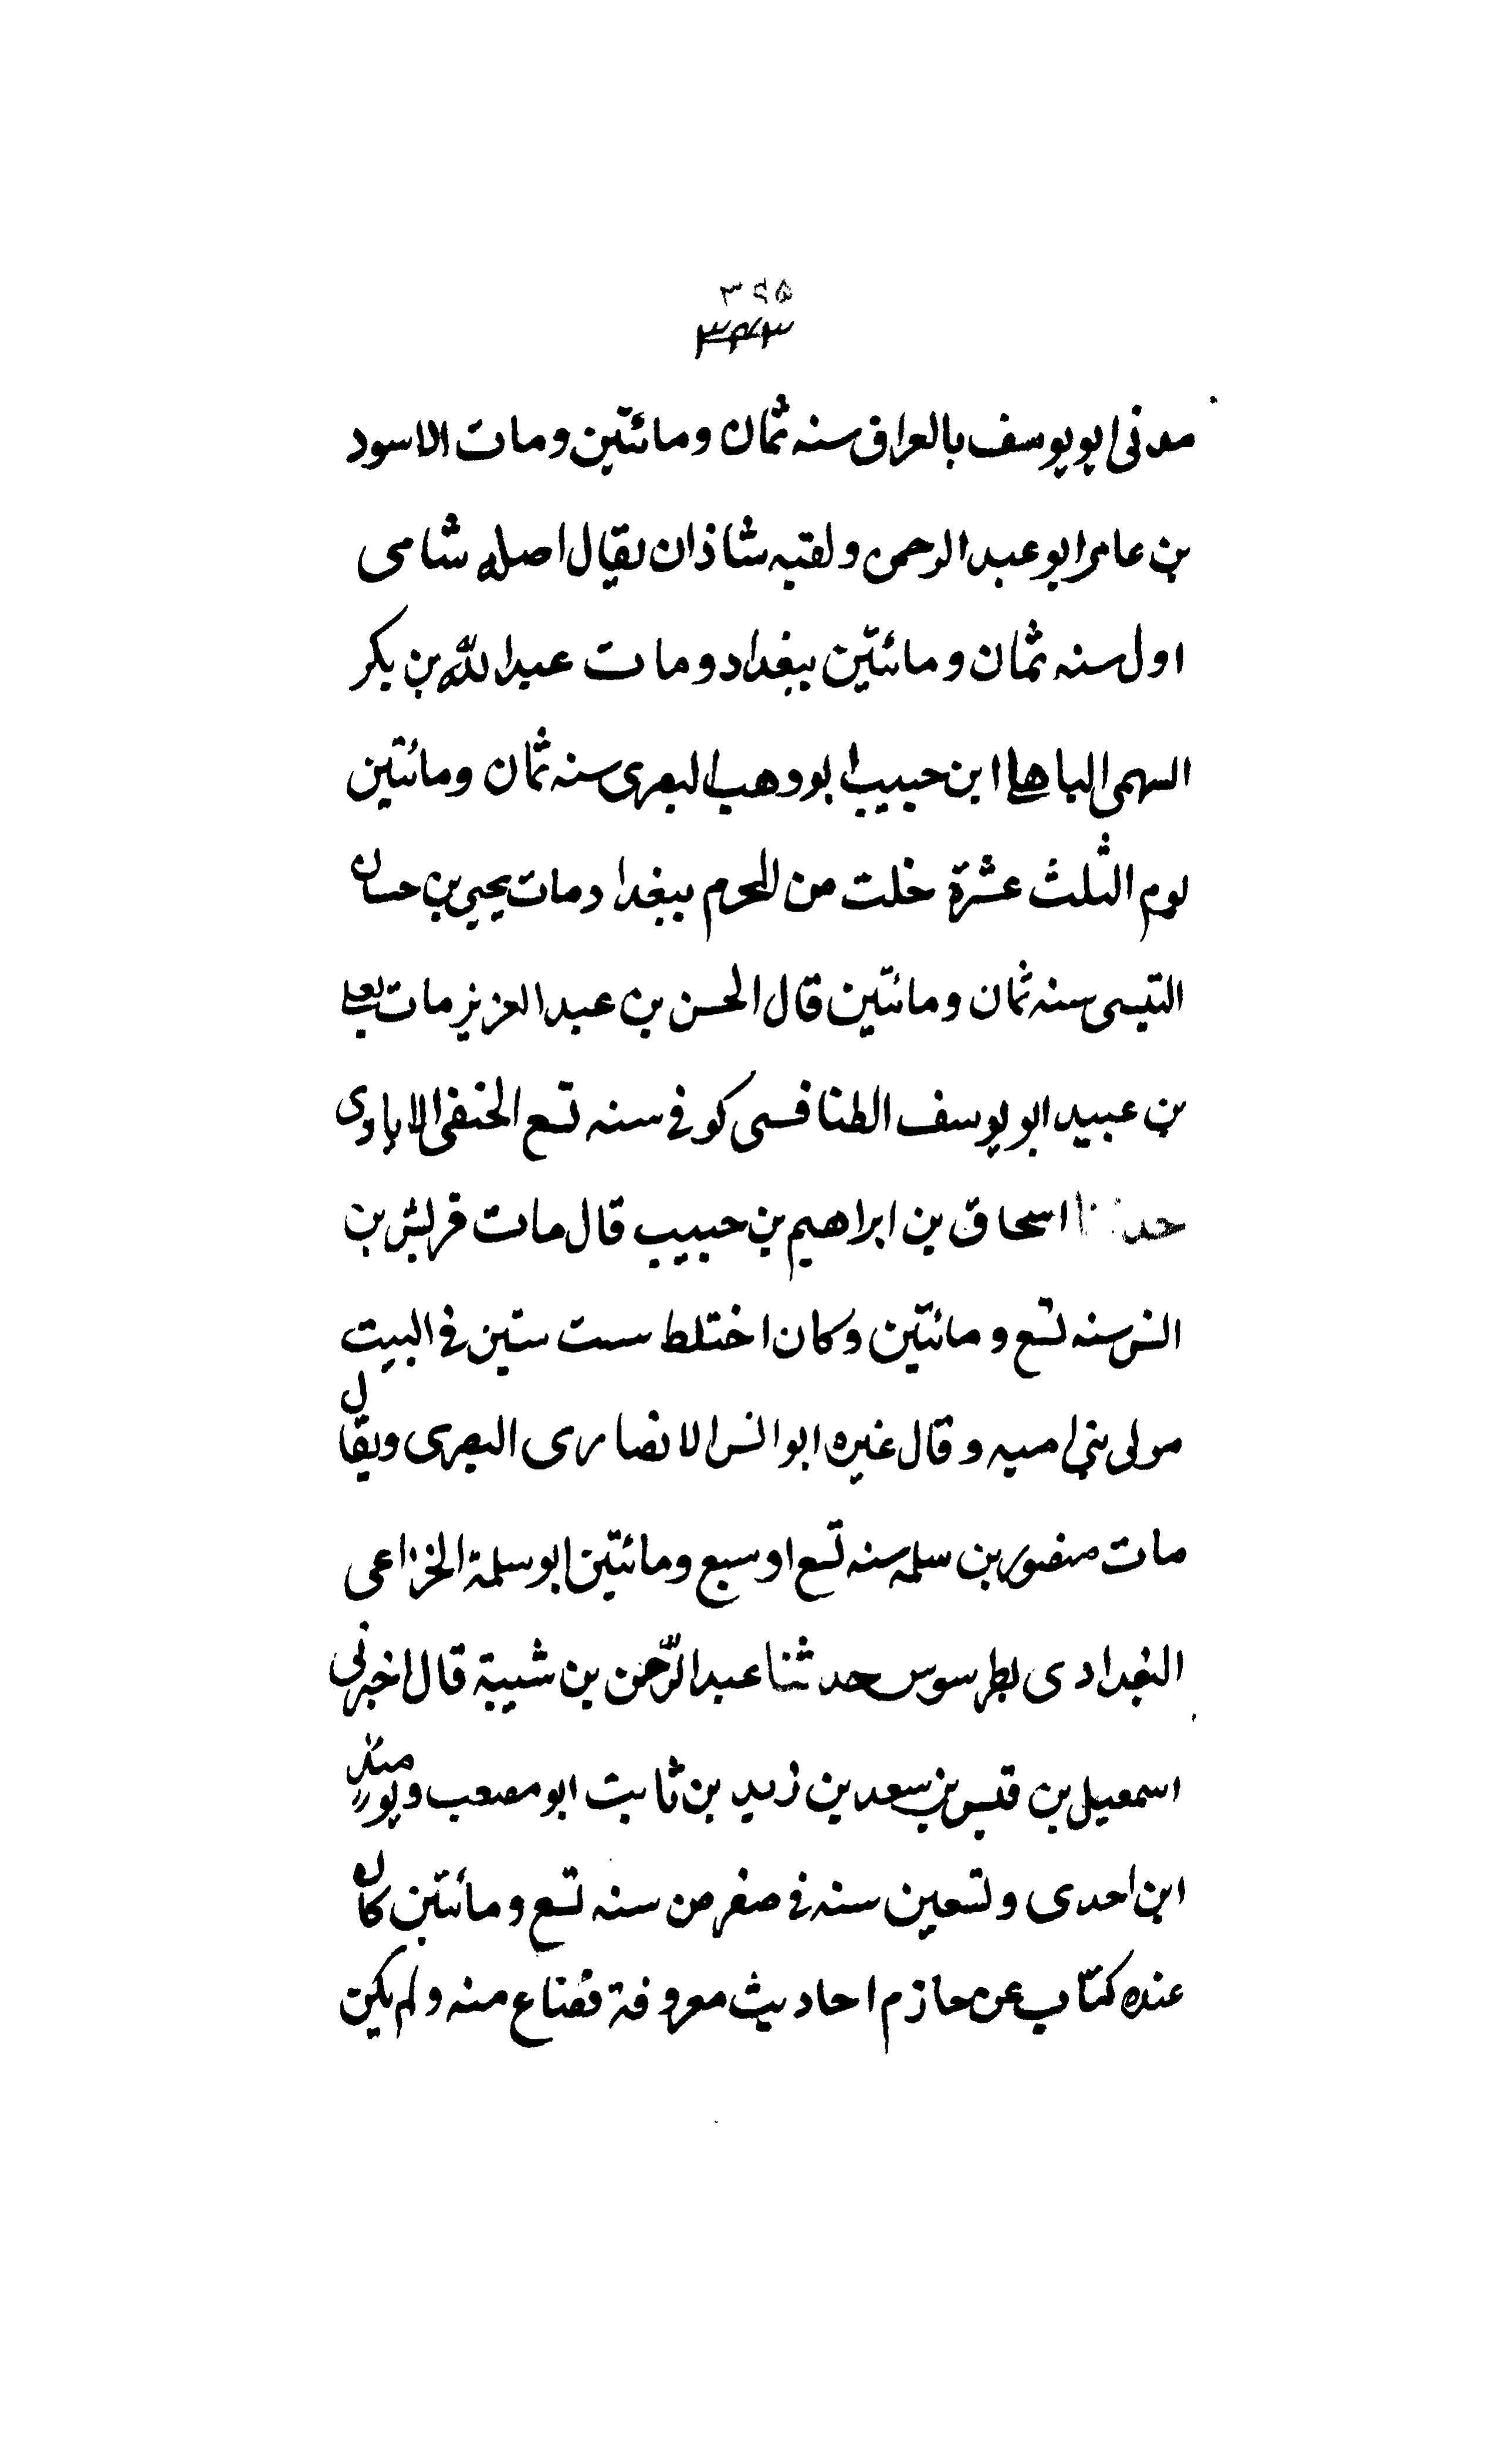 ٣٩٥
٣٤٣
مدنى ابو يوسف بالعراق سنه ثمان ومائتين ومات الاسود
بن عامر ابو عبد الرحمن ولقبه شاذان يقال اصله شامى
اول سنه ثمان ومائتين ببغداد ومات عبد الله بن بكر
السهمى الباهلى ابن حبيب ابو وهب البصرى سنه ثمان ومائتين
يوم الثلث عشرة خلت من المحرم ببغداد ومات يحيى بن حسان
التنيسى سنه ثمان ومائتين قال الحسن بن عبد العزيز مات يعلى
بن عبيد ابو يوسف الطنافسى كوفى سنه تسع الحنفى الايادى
حدثنا اسحاق بن ابراهيم بن حبيب قال مات قريش بن
انس سنه تسع ومائتين وكان اختلط ست سنين فى البيت
مولى بنى اميه وقال غيره ابو انس الانصارى البصرى ويقال
مات منصور بن سلمه سنه تسع او سبع ومائتين ابو سلمة الخزاعى
البغدادى بطرسوس حدثنا عبد الرّحمن بن شيبة قال اخبرنى
اسمعيل بن قيس بن سعد بن زيد بن ثابت ابو مصعب ويومئذ
ابن احدى وتسعين سنه فى صفر من سنه تسع ومائتين كان
عنده كتاب عن حازم احاديث معروفة فضاع منه ولم يكن